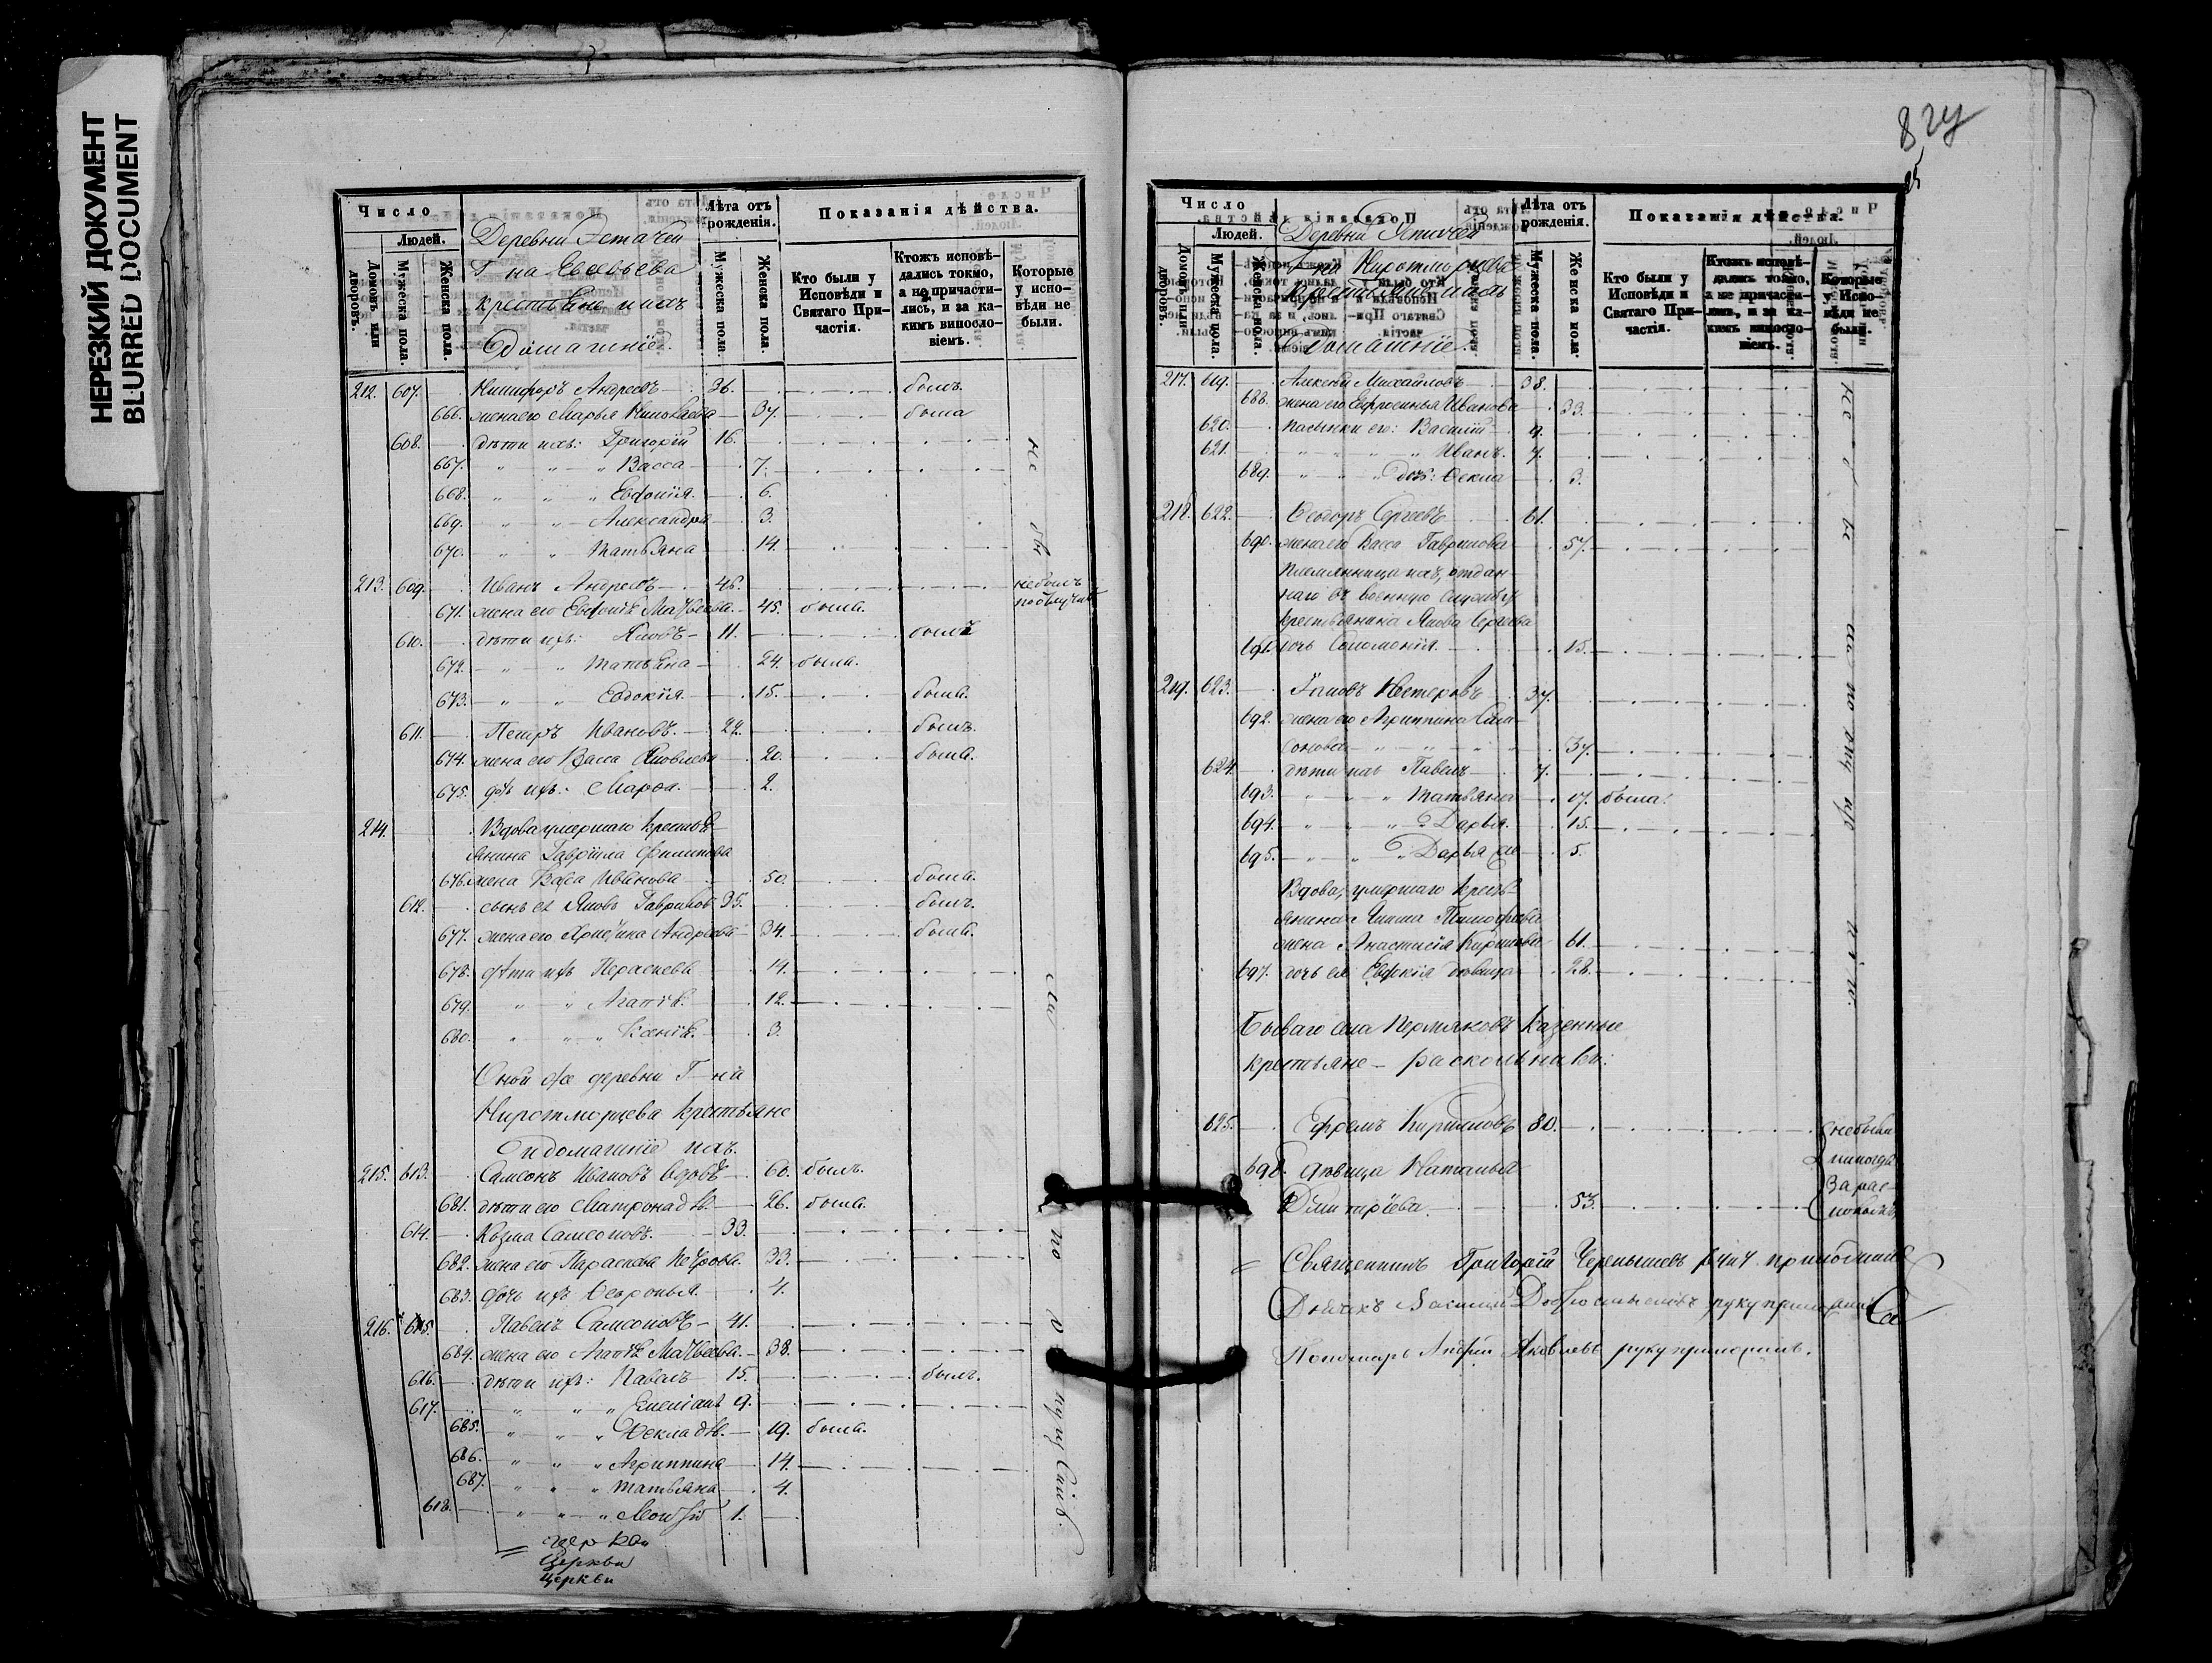 НЕРЕЗКИЙ ДОКУМЕНТ
BLURRED DOCUMENT
Число
Людей.
Домовъ или дворовъ.
Мужеска пола.
Женска пола.
Деревни
Г на Евсевьева
крестьяне и ихъ
домашніе.
Лѣта отъ рожденія.
Мужеска пола.
Женска пола.
Показанія дѣйства.
Кто были у Исповѣди и Святаго Причастія.
Ктожъ исповѣдались токмо, а не причастились, и за какимъ винословіемъ.
Которые у исповѣди не были.
212. 607. Никифоръ Андреевъ 36. былъ
666. жена его Марья Николаева 37. была
608. дѣти ихъ: Григорій 16.
667. " " " Васса 7.
668. " " " Евдокія. 6.
669. " " Александра 3.
670. " " Татьяна 14.
213. 609. Иванъ Андреевъ 46. небылъ
671. жена его Евдокія Матвеева. 45. была.
610. дѣти ихъ: Яковъ 11. былъ
672. " " Татьяна 24. была.
673. " " Евдокія. 15. была.
611. Петръ Ивановъ. 22. былъ.
674. жена его Васса Яковлева 20. была.
675. дочь ихъ: Марѳа. 2.
214. Вдова умершаго крестьянина Гавріила Филипова
676. жена Васса Иванова 50. была.
612. сынъ ея Яковъ Гавриловъ 35. былъ.
677. жена его Христина Андреева 34. была.
678. дѣти ихъ Параскева 14.
679. " " Агапія. 12.
680. " " " Ксенія. 3.
Оной же деревни Г на
Ниротморцева крестьяне
и домашніе ихъ.
215. 613. Самсонъ Ивановъ вдовъ 60. былъ.
681. дѣти его Матрона дѣв. 26. была.
614. Козма Самсоновъ. 33.
682. жена его Параскева Петрова. 33.
683. дочь ихъ Ѳевронья. 4.
216. 615. Павелъ Самсоновъ 41.
684. жена его Агапія Матвеева. 38.
616. дѣти ихъ: Павелъ 15. былъ.
617. " " " Емеліанъ 9.
685. " " " Ѳекла дѣв. 19. была.
686. " " " Агриппина 14.
687. " " " Татьяна 4.
618. " " " 1.
не бы ли по пущенію.
церкви
Церкви
церкви
824
Число
Людей.
Домовъ или дворовъ.
Мужеска пола.
Женска пола.
Деревни
Г на Ниротморцева
крестьяне и ихъ
домашніе.
Лѣта отъ рожденія.
Мужеска пола.
Женска пола.
Показанія дѣйства.
Кто были у Исповѣди и Святаго Причастія.
Ктожъ исповѣдались токмо, а не причастились, и за какимъ винословіемъ.
Которые у Исповѣди не были.
217. 619. Алексѣй Михайловъ 38.
688. жена его Евфросинья Иванова 33.
620. пасынки его: Василій 9.
621. " " " " Иванъ. 7.
689. " " " дочь: Ѳекла 3.
218. 622. Ѳеодоръ Сергеевъ 61.
690. жена его Васса Гаврилова 57.
племянница ихъ, отдан-
наго въ военную службу
крестьянина Якова Сергеева
691. дочь Соломонія. 15.
219. 623. Яковъ Нестеровъ 37.
692. жена его Агриппина Сам-
сонова 37.
624. дѣти ихъ Павелъ 7.
693. " " " Татьяна 17. была.
694. " " " Дарья. 15.
695. " " " Дарья 5.
Вдова, умершаго кресть-
янина Тимофеева
жена Анастасія Кирилова 61.
697. дочь ея Евдокія дѣвица 28.
Бываго села Пермяковъ казенные
крестьяне – раскольники:
625. Ефремъ Кириловъ 80. небыли
698. дѣвица Наталья никогда
Димитріева. 53. за рас-
коломъ,
Священникъ Григорій Чернышевъ
Дьячекъ Василій руку приложилъ
Пономарь Андрей Яковлевъ руку приложилъ.